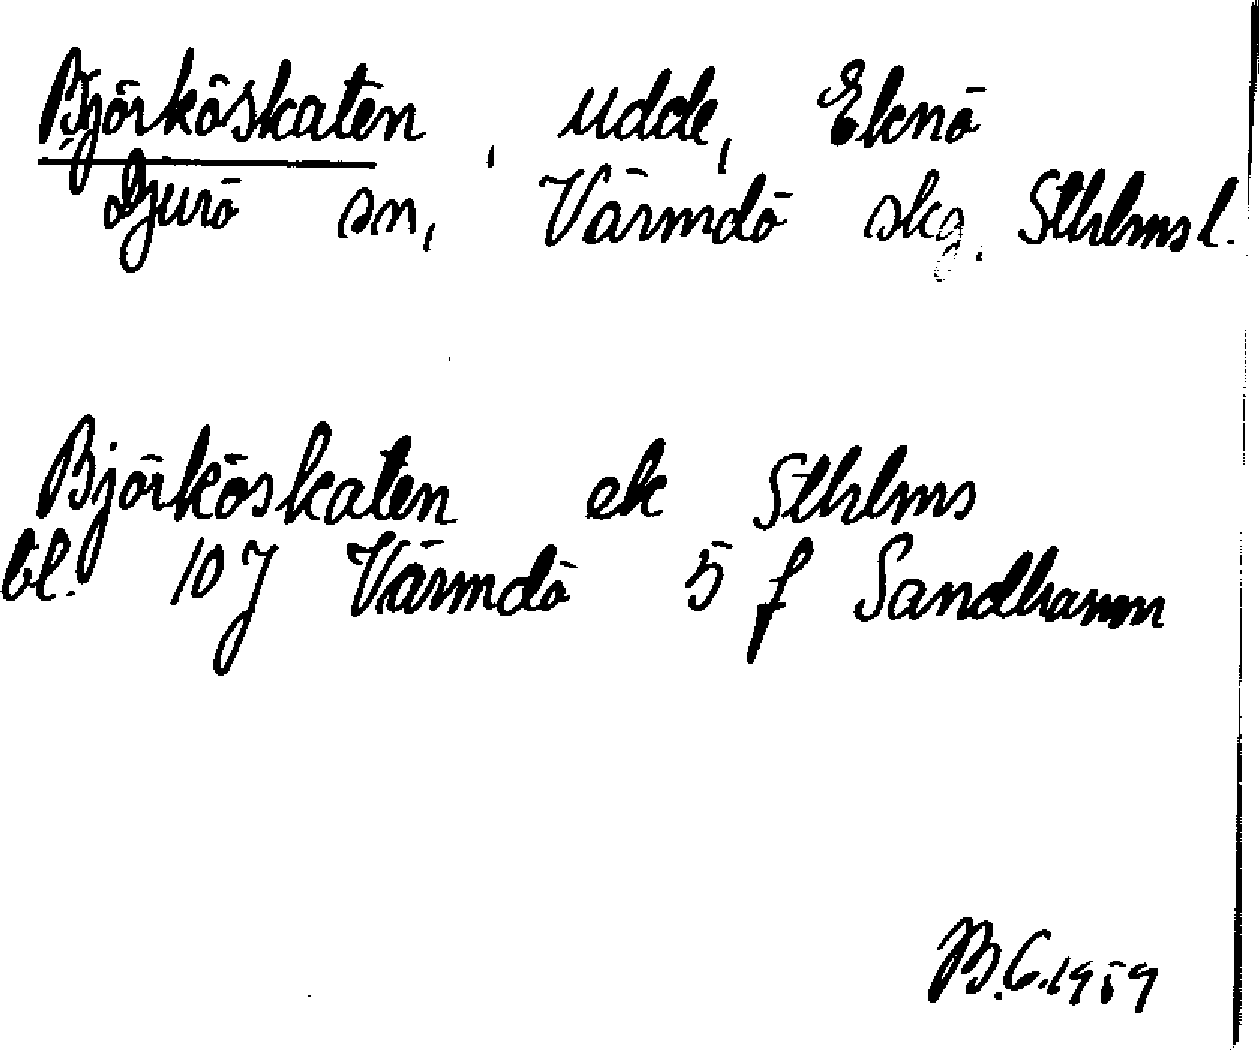 Björköskaten, udde, Eknö
Djurö sn, Värmdö skg. Sthlms l.
Björköskaten ek Sthlms
bl. 10J Värmdö 5 f Sandhamn
B.G.1959